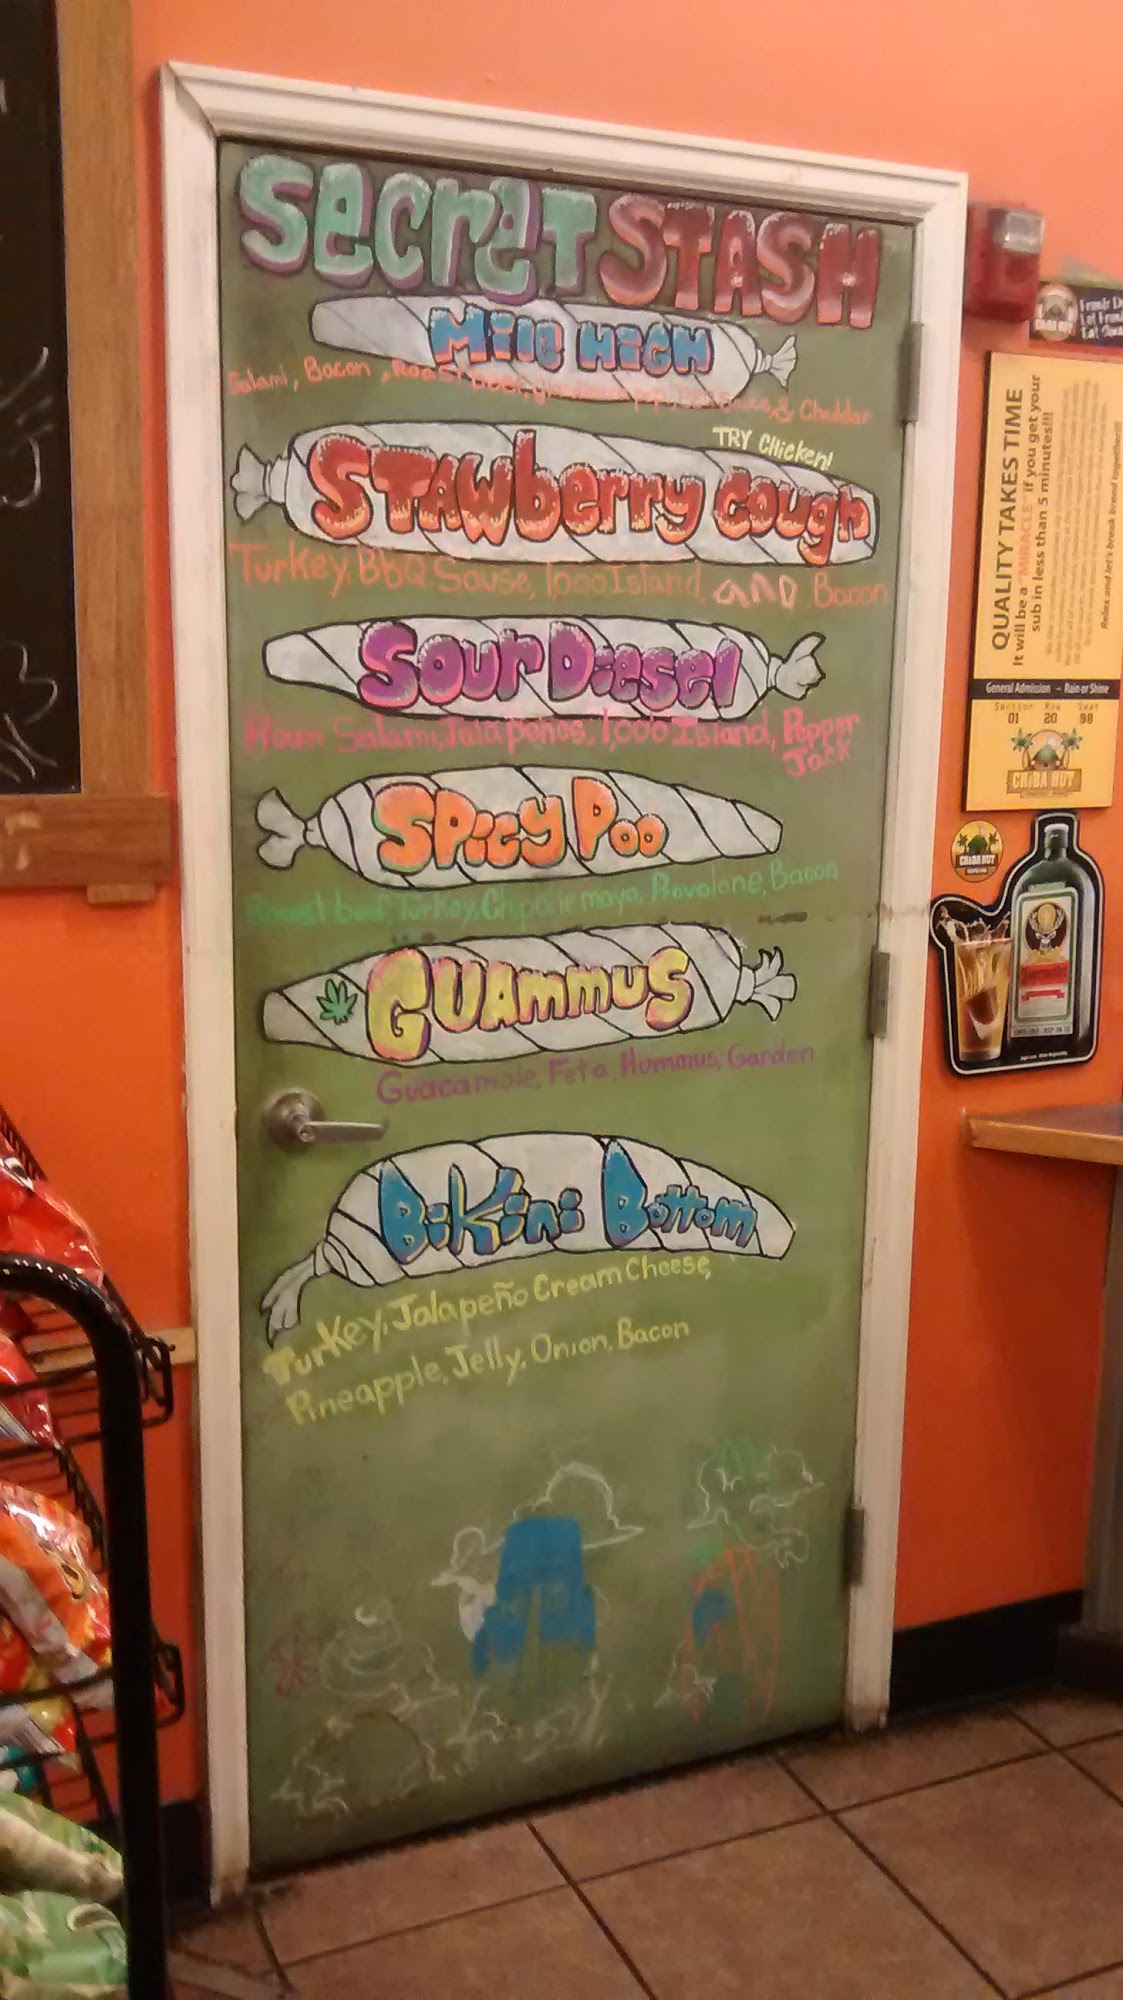 Secret STASH
Mile HIGH
Salami, Bacon, Roast Beef, BBQ Sauce, & Cheddar
TRY Chicken!
STAWberry Cough
Turkey, BBQ Souse, 1,000 Island, AND Bacon
Sour Diesel
Ham Salami, Jalapeños, 1,000 Island, Pepper
Jack
Spicy Poo
Roast beef, Turkey, Chipotle mayo, Provolone, Bacon
GUAmmus
Guacamole, Feta, Hummus, Garden
Bikini Bottom
Turkey, Jalapeño Cream Cheese,
Pineapple, Jelly, Onion, Bacon
QUALITY TAKES TIME
It will be a "MIRACLE" if you get your
sub in less than 5 minutes!!!
Relax and let's break bread together!!!
General Admission - Rain or Shine
Section Row Seat
01 20 98
CHEBA HUT
CHEBA HUT